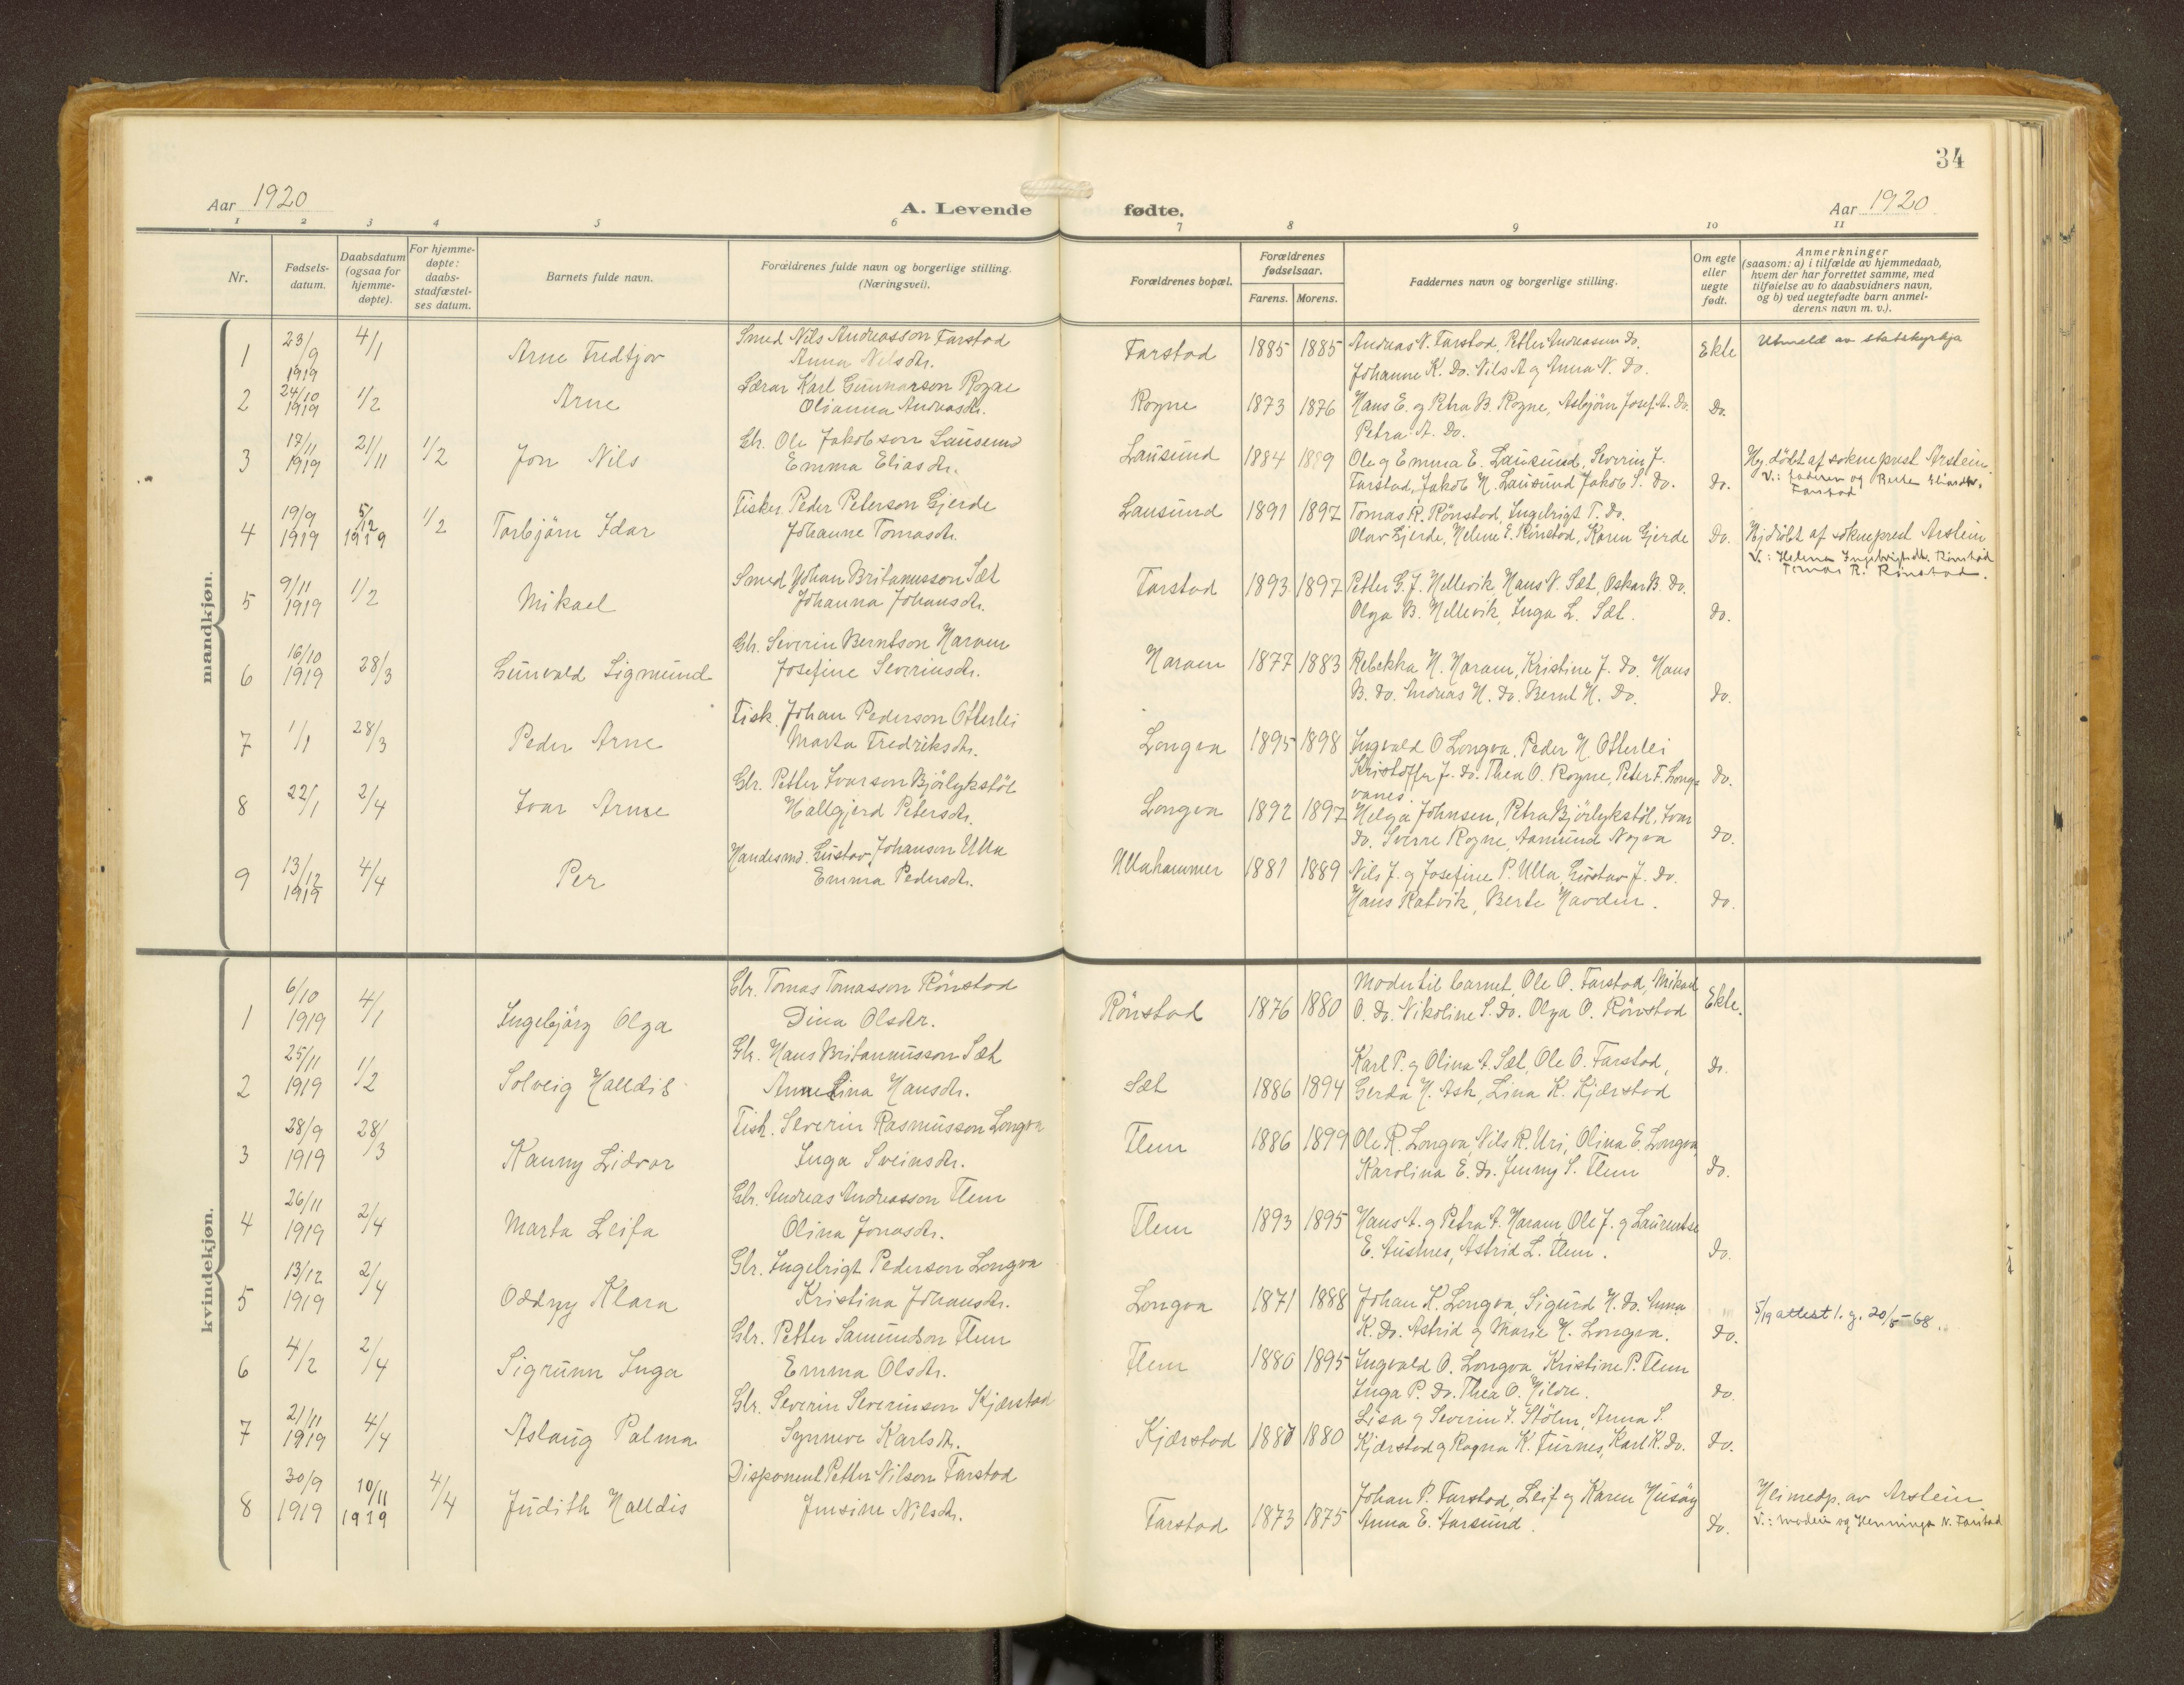 34
Aar 1920
A. Levende fødte.
Aar 1920
1 2 3 4 5 6 7 8 9 10 11
Nr.
Fødsels-
datum.
Daabsdatum
(ogsaa for
hjemme-
døpte).
For hjemme-
døpte:
daabs-
stadfæstel-
ses datum.
Barnets fulde navn.
Forældrenes fulde navn og borgerlige stilling.
(Næringsvei).
Forældrenes bopæl.
Forældrenes
fødselsaar.
Farens. Morens.
Faddernes navn og borgerlige stilling.
Om egte
eller
uegte
født.
Anmerkninger
(saasom: a) i tilfælde av hjemmedaab,
hvem der har forrettet samme, med
tilføielse av to daabsvidners navn,
og b) ved uegtefødte barn anmel-
derens navn m. v.).
mandkjøn.
1 23/9 1919 4/1 Arne Fredtjov
Smed Nils Andreasson Farstad
Anna Nilsdtr.
Farstad 1885 1885
Andreas N. Farstad, Petter Andreassen Do.
Johanne K. Do. Nils A og Anna N. Do.
Ekte
Utmeld av statskyrkja
2 24/10 1919 1/2 Arne
Lærar Karl Gunnarson Rogne
Olianna Andreasdtr.
Rogne 1873 1876
Hans E. og Petra B. Rogne, Asbjörn Josef A. Do.
Petra A. Do.
Do.
3 17/11 1919 21/11 1/2 Jon Nils
Gbr. Ole Jakobson Lausund
Emma Eliasdtr.
Lausund 1884 1889
Ole og Emma E. Lausund, Severin J.
Farstad, Jakob N. Lausund Jakob S. Do.
Do.
Hj. döbt af sokneprest Arstein.
V.: faderen og Berte Eliasdtr.
Farstad
4 19/9 1919 5/12 1919 1/2 Torbjörn Idar
Fisker Peder Peterson Gjerde
Johanne Tomasdtr.
Lausund 1891 1897
Tomas R. Rönstad, Ingebrigt T. Do.
Olav Gjerde, Helene E. Rönstad, Karen Gjerde
Do.
Hjdöbt af sokneprest Arstein
V.: Helena Ingebrigtsdtr. Rönstad
Tomas R. Rönstad.
5 9/11 1919 1/2 Mikael
Smed Johan Britanusson Sæt
Johanna Johansdtr.
Farstad 1893 1897
Petter G. J. Hellevik, Hans N. Sæt, Oskar B. Do.
Olga B. Hellevik, Inga L. Sæt.
Do.
6 16/10 1919 28/3 Gunvald Sigmund
Gbr. Severin Berntson Haram
Josefine Severinsdtr.
Haram 1877 1883
Rebekka H. Haram, Kristine J. Do. Hans
B. Do. Andreas H. Do. Bernt H. Do.
Do.
7 1/1 28/3 Peder Arne
Fisk. Johan Pederson Otterlei
Marta Fredriksdtr.
Longva 1895 1898
Ingvald O Longva, Peder H. Otterlei
Kristoffer J. Do. Thea O. Rogne, Peter F. Longva-
vanes.
Do.
8 22/1 2/4 Ivar Arne
Gbr. Petter Ivarson Björlykstöl
Hallgjerd Petersdtr.
Longva 1892 1897
Helga Johnsen, Petra Björlykstöl, Ivar
Do. Sverre Rogne, Aamund Nogva
Do.
9 13/12 1919 4/4 Per
Handesmd. Gustav Johanson Ulla
Emma Pedersdtr.
Ullahammer 1881 1889
Nils J. og Josefine P. Ulla, Gustav J. Do.
Hans Ratvik, Berte Havden.
Do.
kvindekjøn.
1 6/10 1919 4/1 Ingebjörg Olga
Gbr. Tomas Tomasson Rönstad
Dina Olsdtr.
Rönstad 1876 1880
Moder til barnet, Ole O. Farstad, Mikael
O. Do. Nikoline S. Do. Olga O. Rönstad
Ekte.
2 25/11 1919 1/2 Solveig Halldis
Gbr. Hans Britanusson Sæt
Anne Lina Hansdtr.
Sæt 1886 1894
Karl P. og Olina A. Sæt, Ole O. Farstad,
Gerda H. Ask, Lina K. Kjærstad
Do.
3 28/9 1919 28/3 Kanny Lidvor
Fisk. Severin Rasmusson Longva
Inga Sveinsdtr.
Flem 1886 1899
Ole R. Longva, Nils R. Uri, Olina E. Longva,
Karolina E. Do. Jenny S. Flem
Do.
4 26/11 1919 2/4 Marta Leifa
Gbr. Andreas Andreasson Flem
Olina Jonasdtr.
Flem 1893 1895
Hans A. og Petra A. Haram, Ole J. og Laurentse
E. Austnes, Astrid L. Flem.
Do.
5 13/12 1919 2/4 Oddny Klara
Gbr. Ingebrigt Pederson Longva
Kristina Johansdtr.
Longva 1871 1888
Johan K. Longva, Sigurd H. Do. Anna
K. Do. Astrid og Marie H. Longva.
Do.
5/19 attest l. g. 20/5-68.
6 4/2 2/4 Sigrunn Inga
Gbr. Petter Samundson Flem
Emma Olsdtr.
Flem 1880 1895
Ingvald O. Longva Kristine P. Flem
Inga P. Do. Thea O. Hildre.
Do.
7 21/11 1919 4/4 Aslaug Palma
Gbr. Severin Severinson Kjærstad
Synneve Karlsdtr.
Kjærstad 1880 1880
Lisa og Severin J. Stölen, Anna S.
Kjærstad og Ragna K. Furnes, Karl K. Do.
Do.
8 30/9 1919 10/11 1919 4/4 Judith Halldis
Disponent Petter Nilson Farstad
Jensine Nilsdtr.
Farstad 1873 1875
Johan P. Farstad, Leif og Karen Husöy
Anna E. Aarsund.
Do.
Heimedp. av Arstein
V.: moderi og Henninga N. Farstad